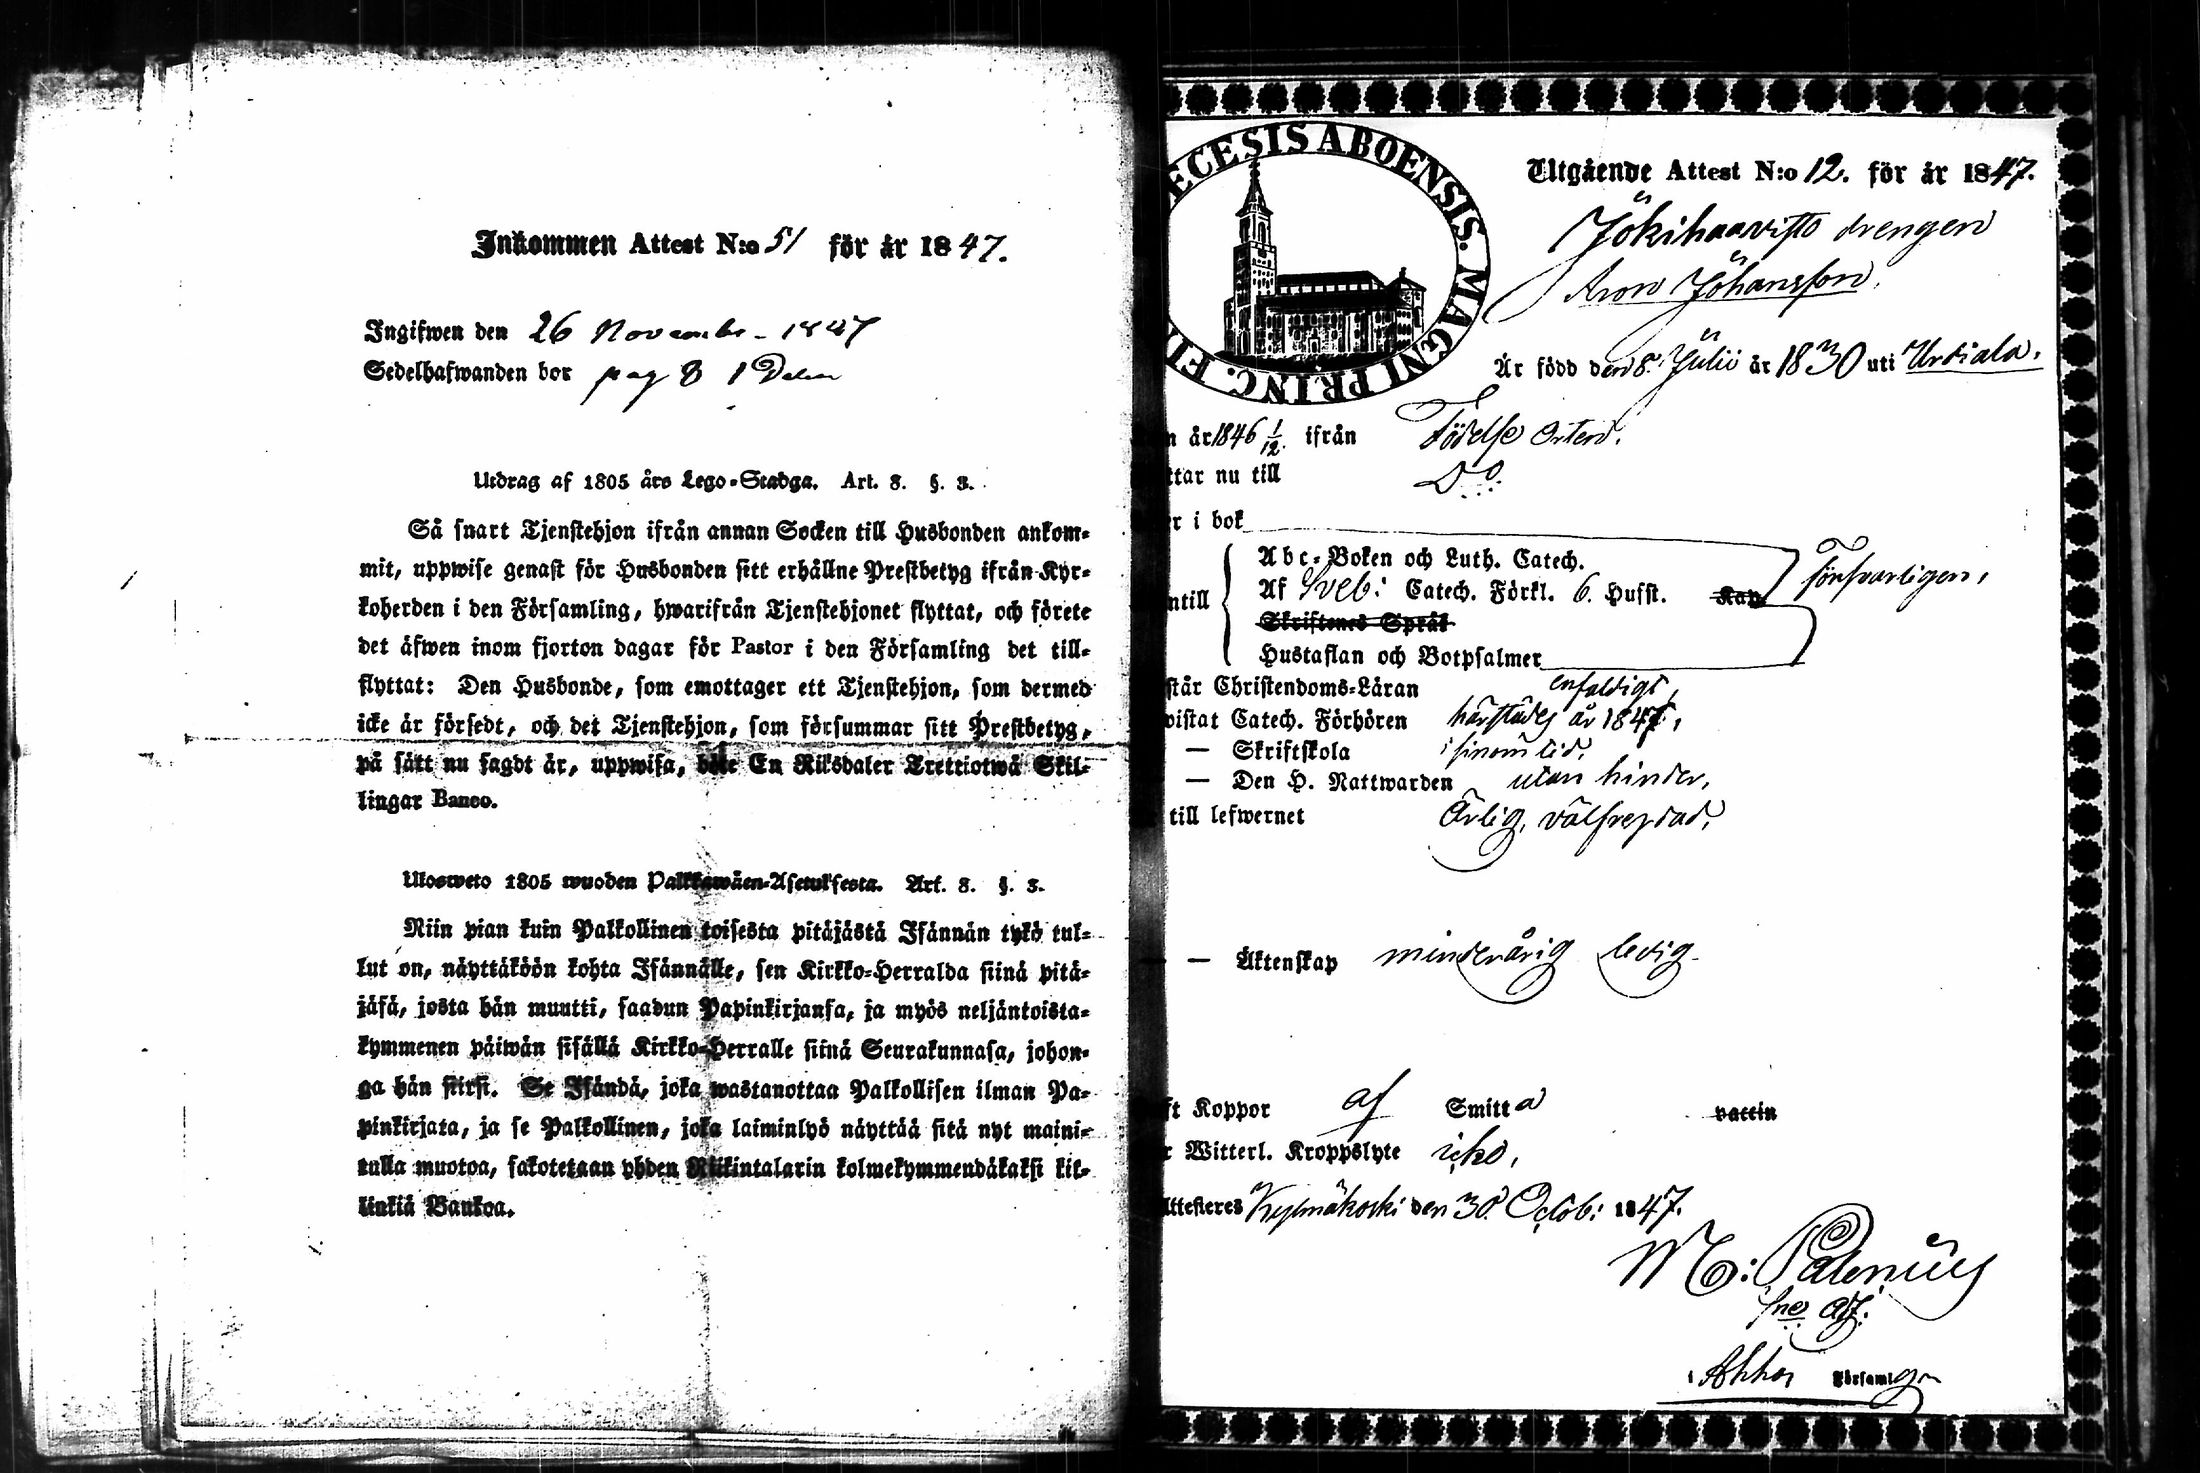 Inkommen Attest N:o 51 för år 1847.
Ingifwen den 26 November 1847
Sedelhafwanden bor pag 8 1 Delen
Utdrag af 1805 års Lego-Stadga. Art. 8. §. 3.
Så snart Tjenstehjon ifrån annan Socken till Husbonden ankom-
mit, uppwise genast för Husbonden sitt erhållne Prestbetyg ifrån Kyr-
koherden i den Församling, hwarifrån Tjenstehjonet flyttat, och förete
det äfwen inom fjorton dagar för Pastor i den Församling det till-
flyttat: Den Husbonde, som emottager ett Tjenstehjon, som dermed
icke är försedt, och det Tjenstehjon, som försummar sitt Prestbetyg,
på sätt nu sagdt är, uppwisa, böte En Riksdaler Trettiotwå Skil-
lingar Banco.
Ulosweto 1805 wuoden Palkkawäen-Asetuksesta. Art. 8. §. 3.
Niin pian kuin Palkollinen toisesta pitäjästä Isännän tykö tul-
lut on, näyttäköön kohta Isännälle, sen Kirkko-Herralda siinä pitä-
jäsä, josta hän muutti, saadun Papinkirjansa, ja myös neljäntoista-
kymmenen päiwän sisällä Kirkko-Herralle siinä Seurakunnasa, johon-
ga hän siirsi. Se Isändä, joka wastanottaa Palkollisen ilman Pa-
pinkirjata, ja se Palkollinen, joka laiminlyö näyttää sitä nyt maini-
tulla muotoa, sakotetaan yhden Riikintalarin kolmekymmendäkaksi kil-
linkiä Bankoa.
ECESIS ABOENSIS. MAGNI PRINC. FI
Utgående Attest N:o 12. för år 1847.
Jokihaavisto drengen
Aron Johansson.
Är född den 8. Julii år 1830 uti Urdiala.
n år 1846 1/12. ifrån Födelse Orten.
ttar nu till Do.
er i bok
Abc-Boken och Luth. Catech.
ntill Af Sveb: Catech. Förkl. 6. Hufst. Kap. Försvarligen,
Skriftenes Språk
Hustaflan och Botpsalmer
står Christendoms-Läran enfaldigt,
wistat Catech. Förhören härstädes år 1847,
— Skriftskola i sinom tid,
— Den H. Nattwarden utan hinder,
till lefwernet Ärlig, välfrejdad,
— Äktenskap minderårig ledig.
ft Koppor af Smitta vaccin
r Witterl. Kroppslyte icke,
Attesteres Kylmäkoski den 30. Octob: 1847.
M: Palenius
sne adj.
i Akkas Församlgn